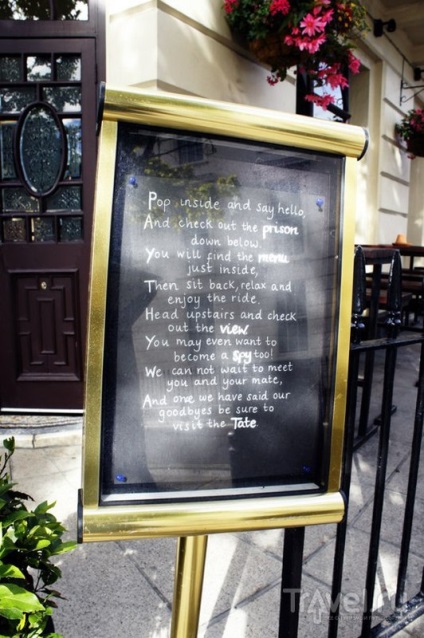 Pop inside and say hello,
And check out the prison
down below.
You will find the menu
just inside,
Then sit back, relax and
enjoy the ride.
Head upstairs and check
out the view
You may even want to
become a spy too!
We can not wait to meet
you and your mate,
And one we have said our
goodbyes be sure to
visit the Tate
Travel.ru